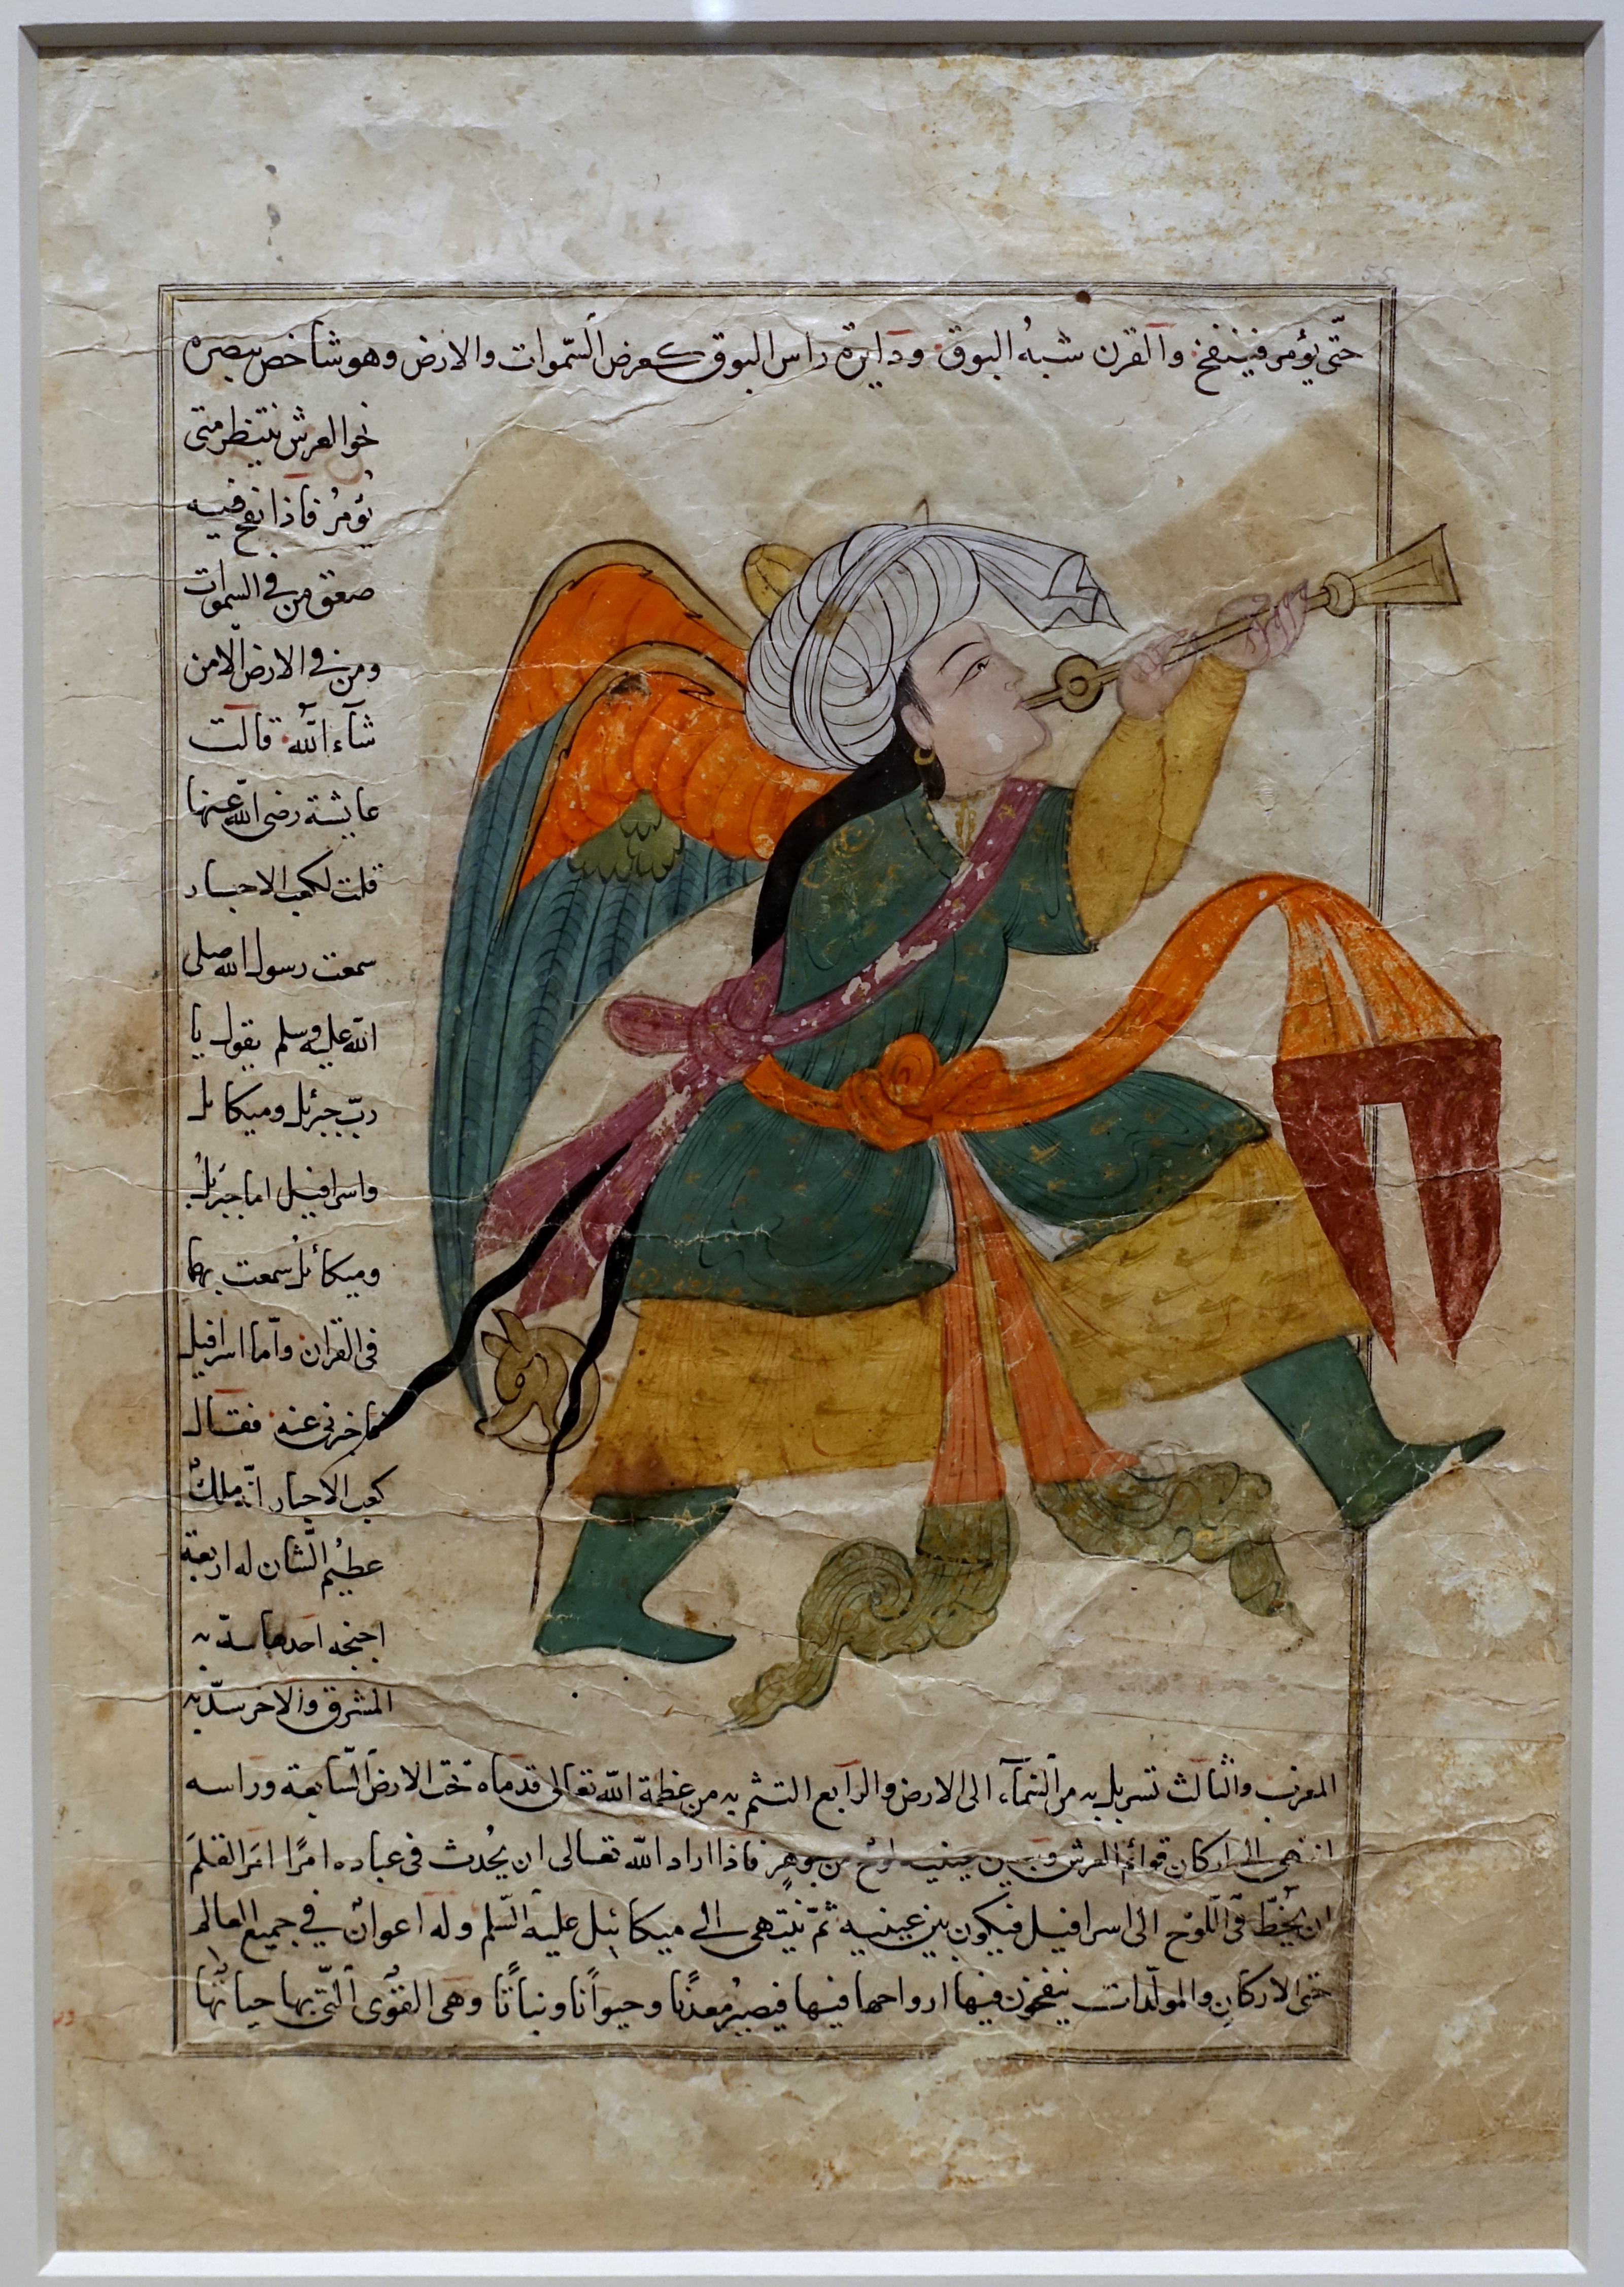 حتّى يؤمر فينفخ والقرن شبه البوق ودايرة راس البوق كعرض السّموات والارض وهو شاخص ببصره
نحو العرش ينتظر متى
يُؤمرُ فاذا نفخ فيه
صعق من في السموات
ومن في الارض الا من
شآء اللّه قالت
عايشة رضى اللّه عنها
قلت لكعب الاحبار
سمعت رسول اللّه صلى
اللّه عليه وسلم يقول يا
ربّ جبرئل وميكائل
واسرافيل اما جبرئل
وميكائل سمعت بهما
فى القران وأما اسرافيل
فاخبرنى عنه فقال
كعب الاحبار انّه ملكٌ
عظيمُ الشّان له اربعة
اجنحة احدها سدّ به
المشرق والاخر سدّ به
المغرب والثالث تسربل به من السّمآء الى الارض والرابع التثم به من عظمة اللّه تعالى قدماه تحت الارض السّابعة وراسه
انتهى الى اركان قوائم العرش وبين عينيه لوح من جوهرٍ فاذا اراد اللّه تعالى ان يُحدث فى عباده امرًا امَر القلمَ
ان يخُطّ فى اللّوح الى اسرافيل فيكون بين عينيه ثمّ ينتهى الى ميكائيل عليه السّلم وله اعوانٌ في جميع العالم
حتى الاركان والمولّدات ينفخون فيها ارواحها فيها فيصيرُ معدنًا وحيوانًا ونباتًا وهى القُوى الّتى بها حياتها